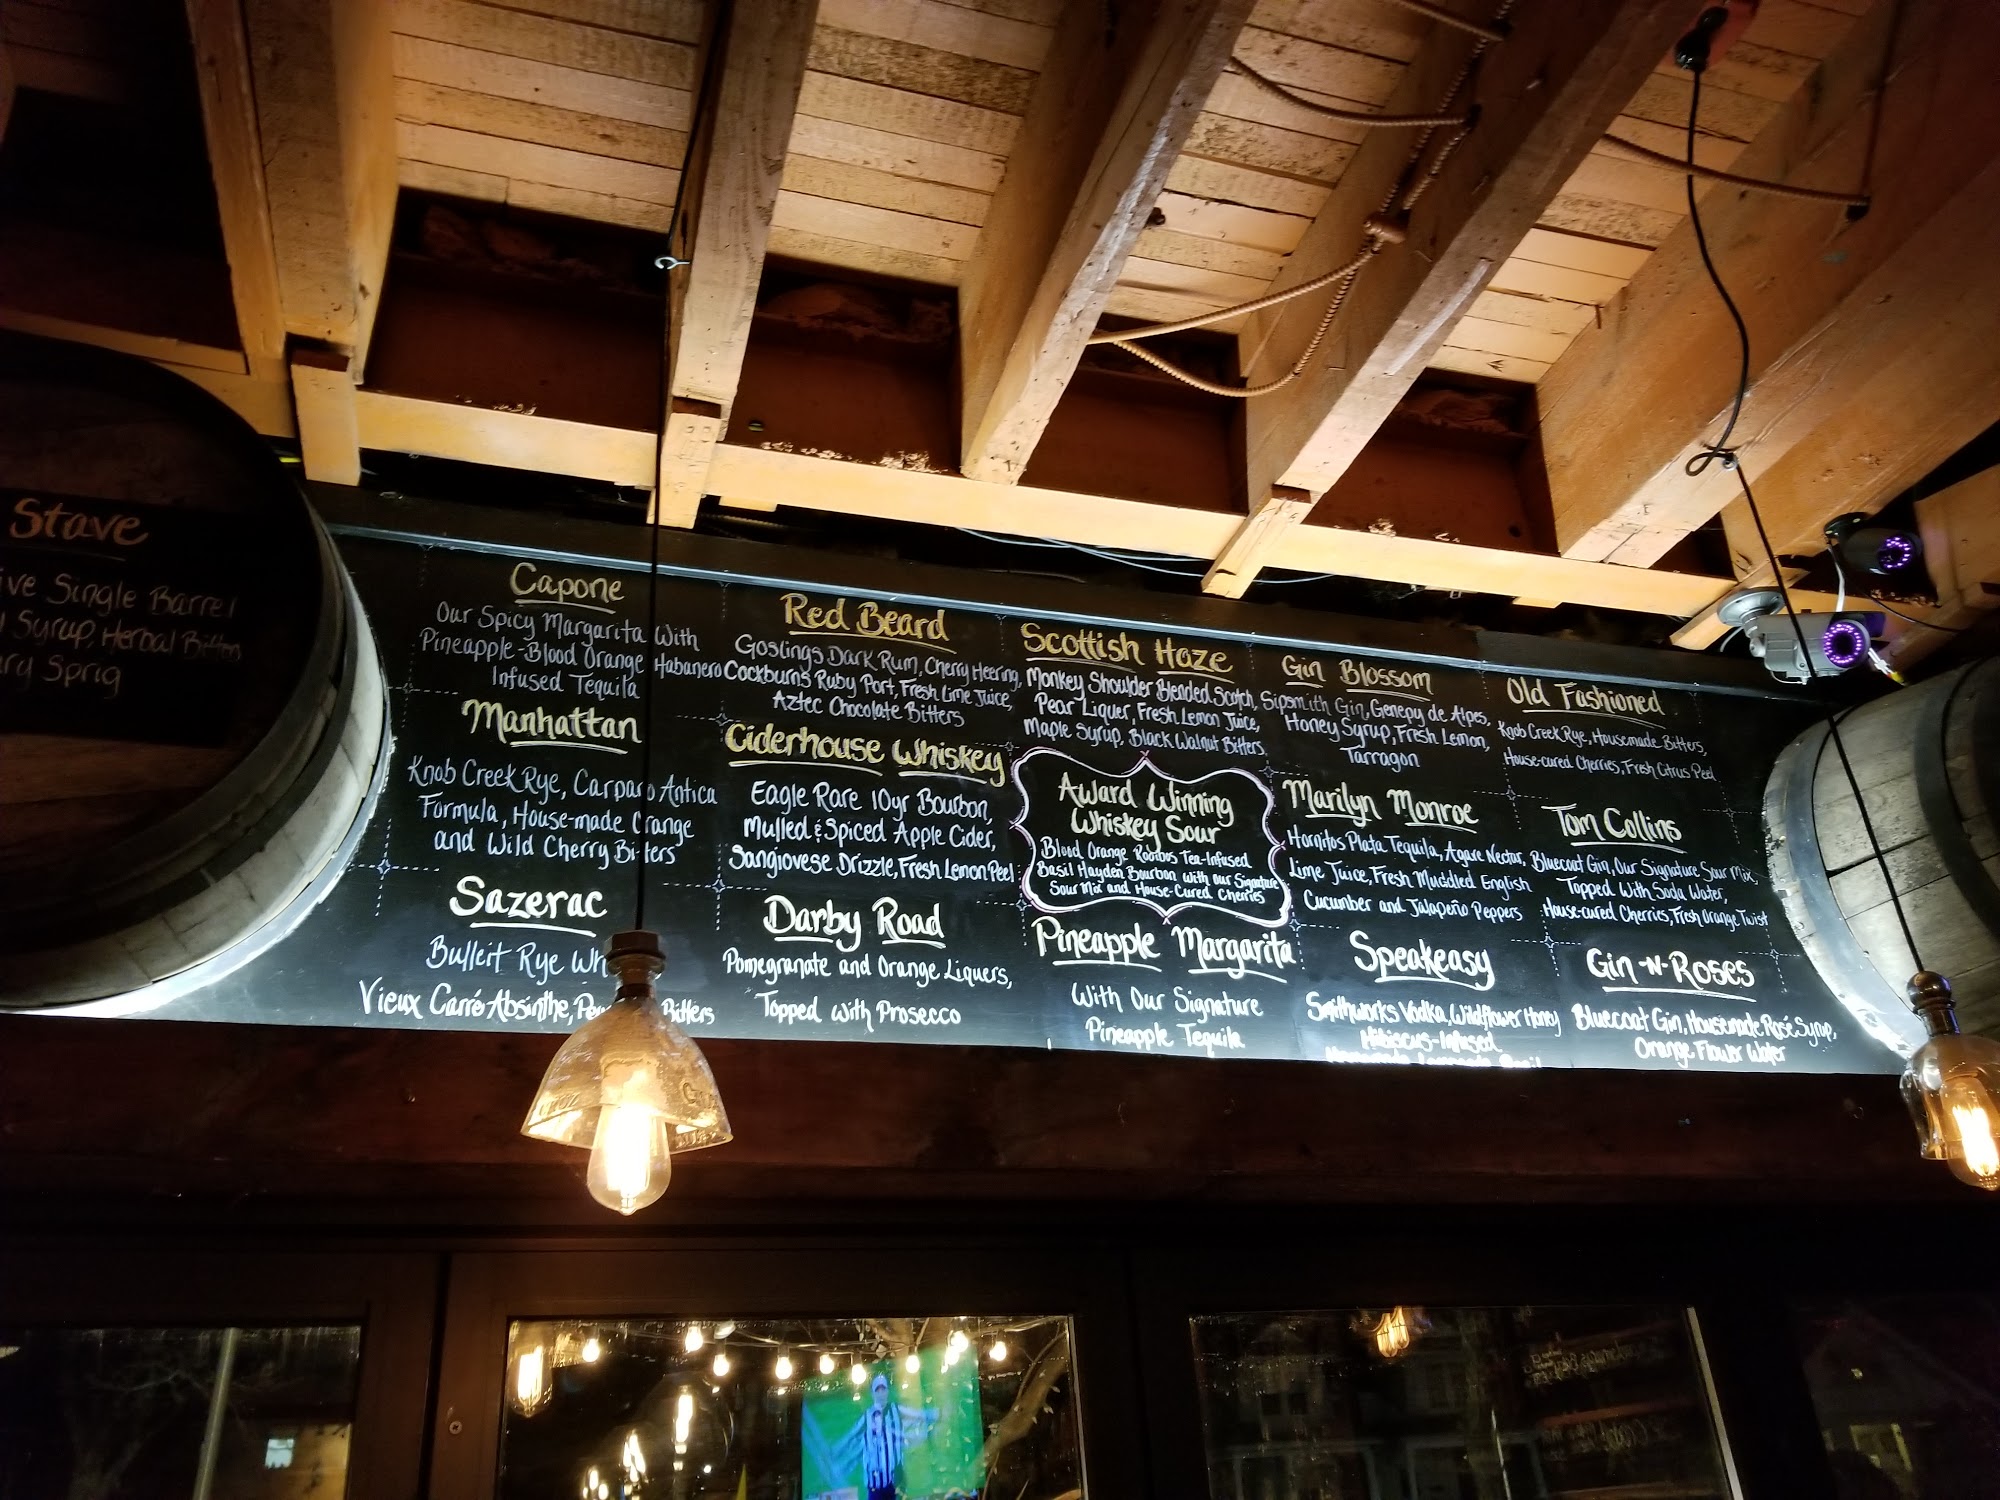 Stave
Single Barrel
Syrup, Herbal Bitters
Sprig
Capone
Our Spicy Margarita With
Pineapple-Blood Orange Habanero
Infused Tequila
Manhattan
Knob Creek Rye, Carpano Antica
Formula, House-made Orange
and Wild Cherry Bitters
Sazerac
Bulleit Rye
Vieux Carré Absinthe, Bitters
Red Beard
Goslings Dark Rum, Cherry Heering,
Cockburns Ruby Port, Fresh Lime Juice,
Aztec Chocolate Bitters
Ciderhouse Whiskey
Eagle Rare 10yr Bourbon,
Mulled & Spiced Apple Cider,
Sangiovese Drizzle, Fresh Lemon Peel
Darby Road
Pomegranate and Orange Liquers,
Topped With Prosecco
Scottish Haze
Monkey Shoulder Blended Scotch,
Pear Liquer, Fresh Lemon Juice,
Maple Syrup, Black Walnut Bitters
Award Winning
Whiskey Sour
Blood Orange Rooibos Tea-Infused
Basil Hayden Bourbon With our Signature
Sour Mix and House-Cured Cherries
Pineapple Margarita
With Our Signature
Pineapple Tequila
Gin Blossom
Sipsmith Gin, Genepy de Alpes,
Honey Syrup, Fresh Lemon,
Tarragon
Marilyn Monroe
Hornitos Plata Tequila, Agave Nectar,
Lime Juice, Fresh Muddled English
Cucumber and Jalapeño Peppers
Speakeasy
Smithworks Vodka, Wildflower Honey
Hibiscus-Infused
Homemade Lemonade, Basil
Old Fashioned
Knob Creek Rye, Housemade Bitters,
House-cured Cherries, Fresh Citrus Peel
Tom Collins
Bluecoat Gin, Our Signature Sour Mix,
Topped With Soda Water,
House-cured Cherries, Fresh Orange Twist
Gin-N-Roses
Bluecoat Gin, Housemade Rosé Syrup,
Orange Flower Water